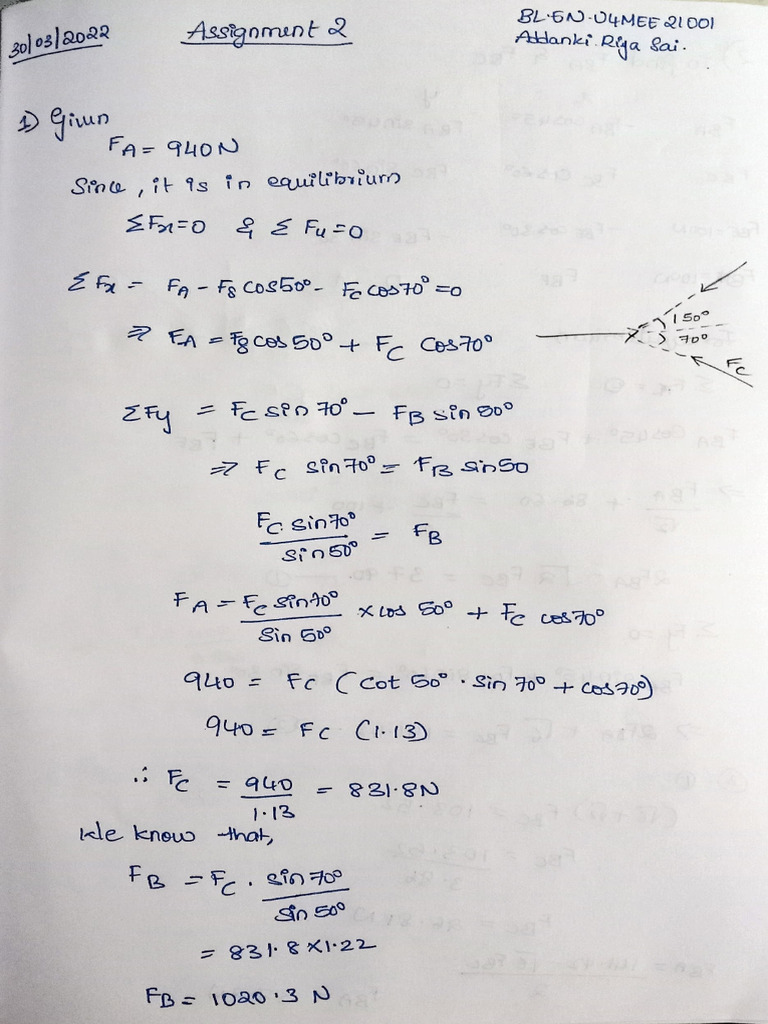 30/03/2022
Assignment 2
BL.EN.U4MEE21001
Addanki.Riya Sai.
1) Given
FA = 940N
Since, it is in equilibrium
ΣFx=0 & ΣFy=0
ΣFx = FA - FB cos50° - FC cos70° =0
⇒ FA = FB cos 50° + FC cos70°
50°
70°
FC
ΣFy = FC sin 70° - FB sin 50°
⇒ FC sin70° = FB sin50
FC. sin70° / sin50° = FB
FA = FC sin70° / sin 50° × cos 50° + FC cos70°
940 = FC (cot 50° . sin 70° + cos70°)
940 = FC (1.13)
∴ FC = 940 / 1.13 = 831.8N
We know that,
FB = FC . sin 70° / sin 50°
= 831.8 × 1.22
FB = 1020.3 N